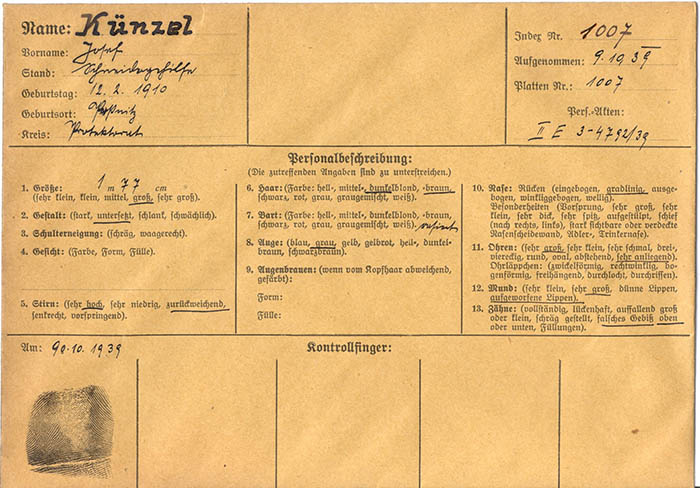 Name: Künzel
Vorname: Josef
Stand: Schneidergehilfe
Geburtstag: 12. 2. 1910
Geburtsort:
Kreis: Protektorat
Index Nr. 1007
Aufgenommen: 9. 10 39
Platten Nr.: 1007
Pers.-Akten:
II E 3-4792/39
Personalbeschreibung:
(Die zutreffenden Angaben sind zu unterstreichen.)
1. Größe: 1 m 77 cm
(sehr klein, klein, mittel, groß, sehr groß).
2. Gestalt: (stark, untersetzt, schlank, schwächlich).
3. Schulterneigung: (schräg, waagerecht).
4. Gesicht: (Farbe, Form, Fülle).
5. Stirn: (sehr hoch, sehr niedrig, zurückweichend,
senkrecht, vorspringend).
6. Haar: (Farbe: hell-, mittel-, dunkelblond, -braun,
schwarz, rot, grau, graugemischt, weiß).
7. Bart: (Farbe: hell-, mittel-, dunkelblond, -braun,
schwarz, rot, grau, graugemischt, weiß). rasiert
8. Auge: (blau, grau, gelb, gelbrot, hell-, dunkel-
braun, schwarzbraun).
9. Augenbrauen: (wenn vom Kopfhaar abweichend,
gefärbt):
Form:
Fülle:
10. Nase: Rücken (eingebogen, gradlinig, ausge-
bogen, winkliggebogen, wellig).
Besonderheiten (Vorsprung, sehr groß, sehr
klein, sehr dick, sehr spitz, aufgestülpt, schief
(nach rechts, links), stark sichtbare oder verdeckte
Nasenscheidewand, Adler-, Trinkernase).
11. Ohren: (sehr groß, sehr klein, sehr schmal, drei-,
viereckig, rund, oval, abstehend, sehr anliegend).
Ohrläppchen: (zwickelförmig, rechtwinklig, bo-
genförmig, freihängend, durchlocht, durchriffen).
12. Mund: (sehr klein, sehr groß, dünne Lippen,
aufgeworfene Lippen).
13. Zähne: (vollständig, lückenhaft, auffallend groß
oder klein, schräg gestellt, falsches Gebiß oben
oder unten, Füllungen).
Am: 10. 1939
Kontrollfinger: